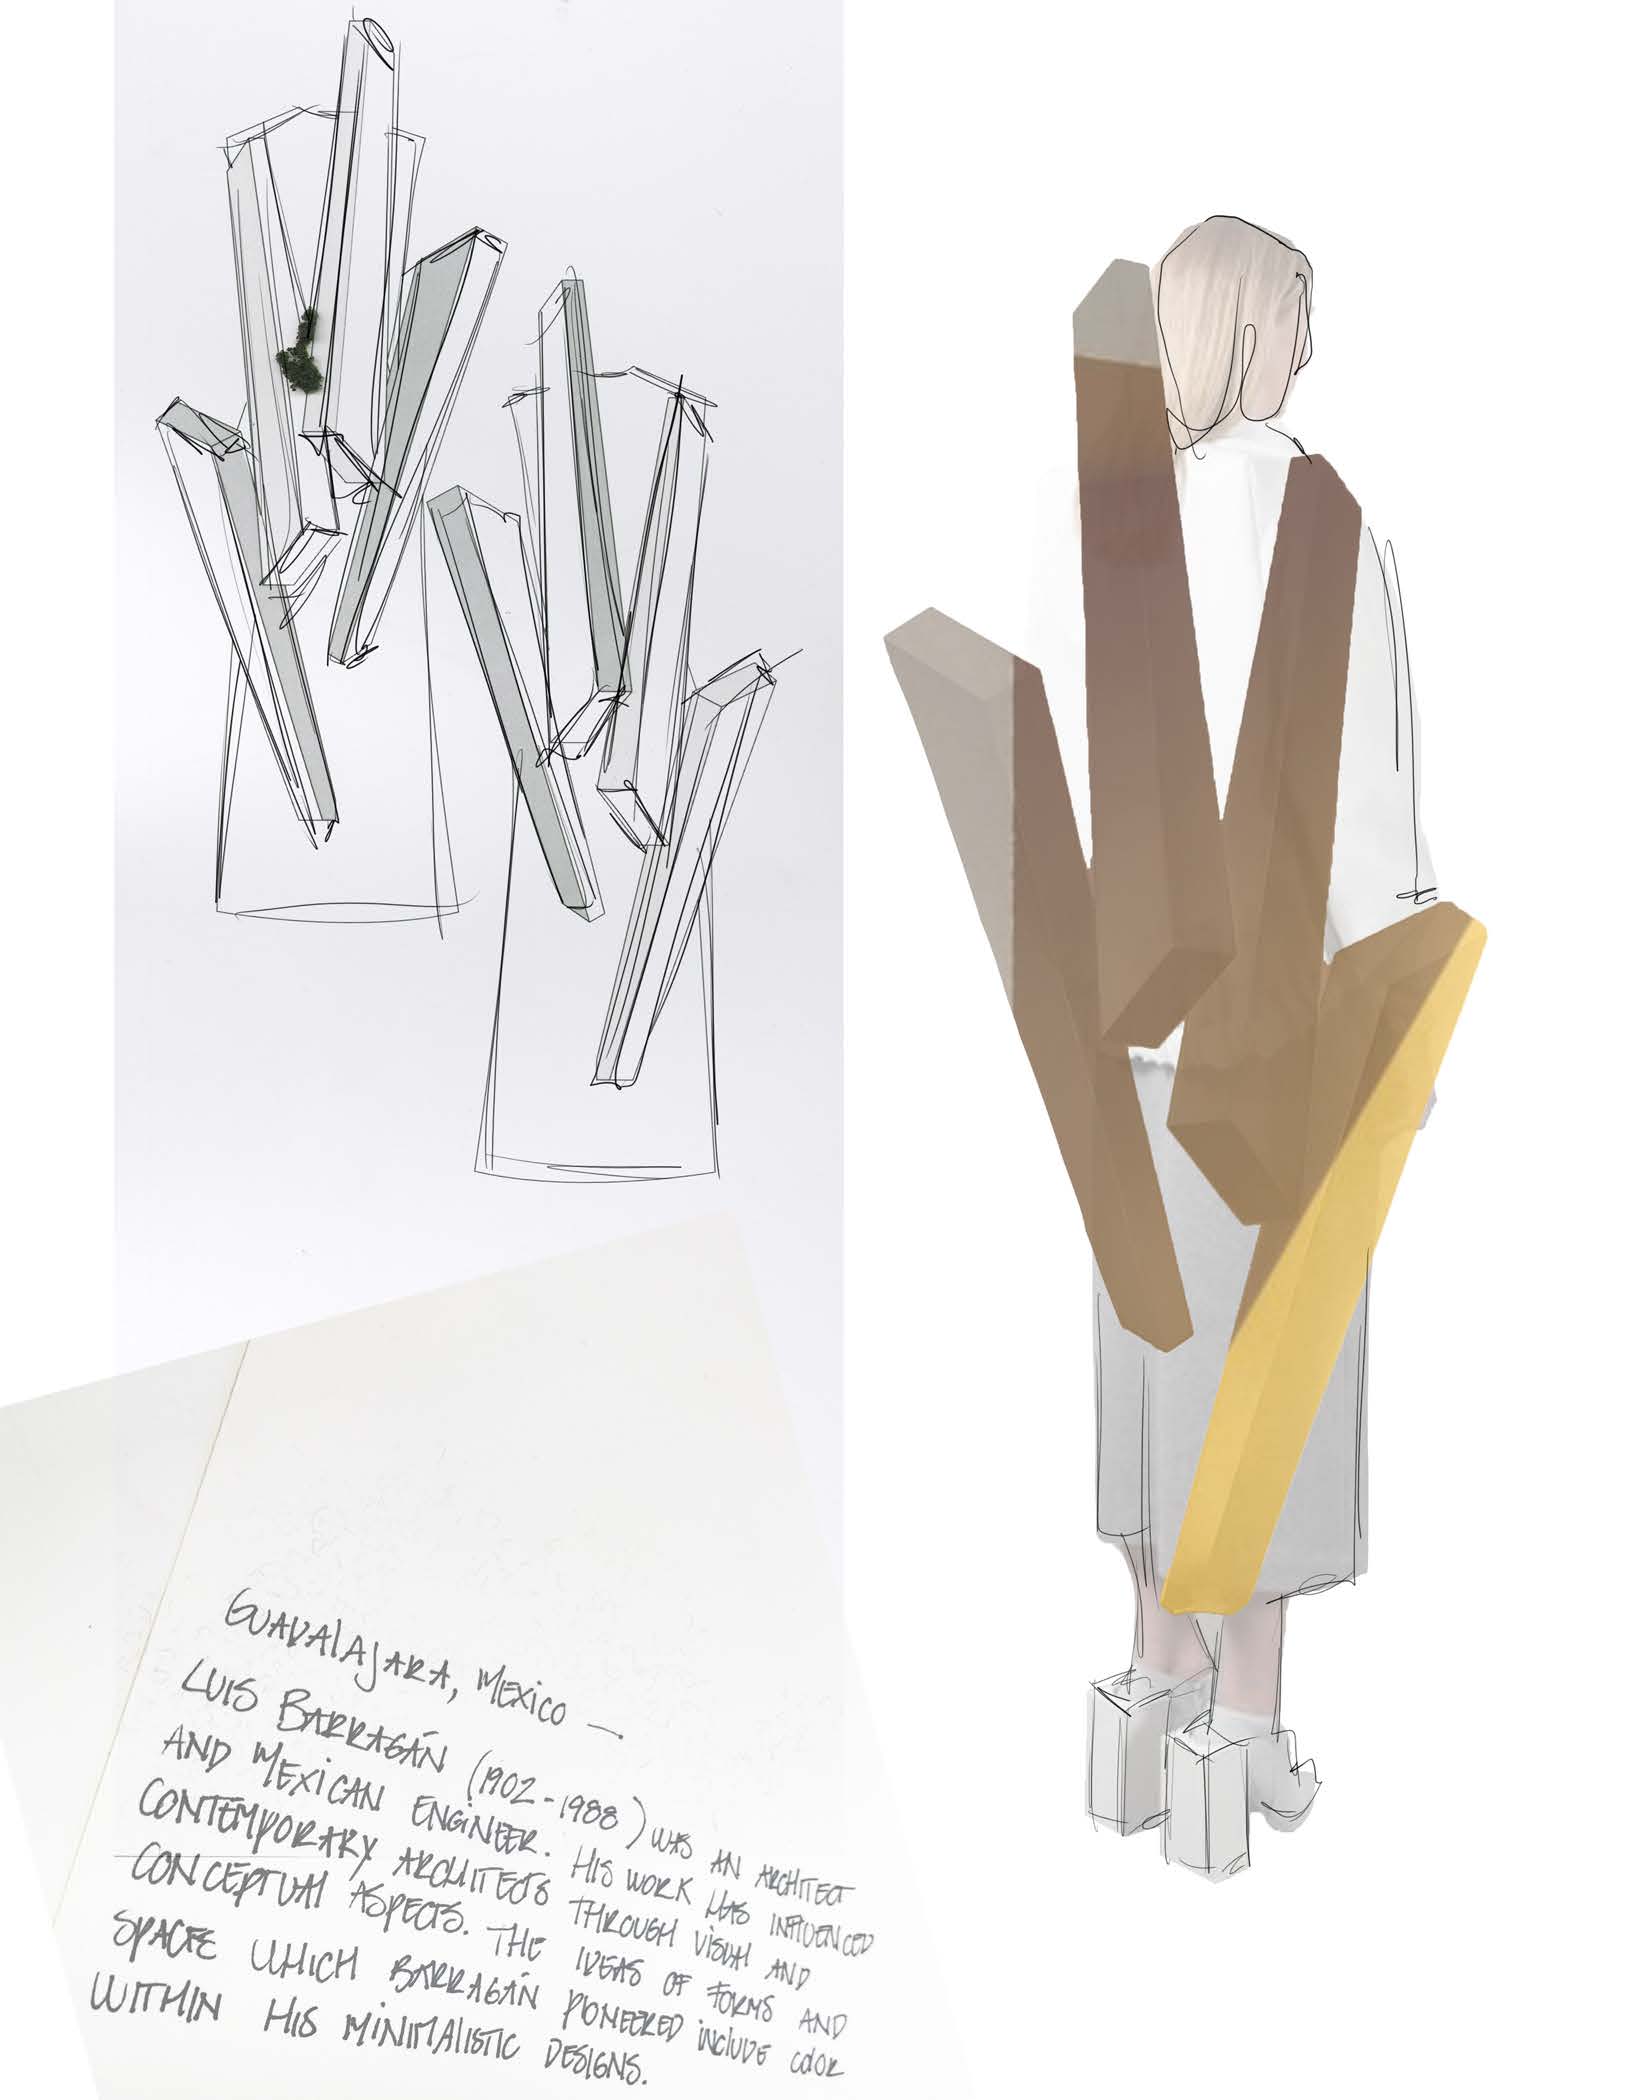 GUADALAJARA, MEXICO —
LUIS BARRAGÁN (1902-1988) WAS AN ARCHITECT
AND MEXICAN ENGINEER. HIS WORK HAS INFLUENCED
CONTEMPORARY ARCHITECTS THROUGH VISUAL AND
CONCEPTUAL ASPECTS. THE IDEAS OF FORMS AND
SPACE WHICH BARRAGÁN PIONEERED INCLUDE COLOR
WITHIN HIS MINIMALISTIC DESIGNS.